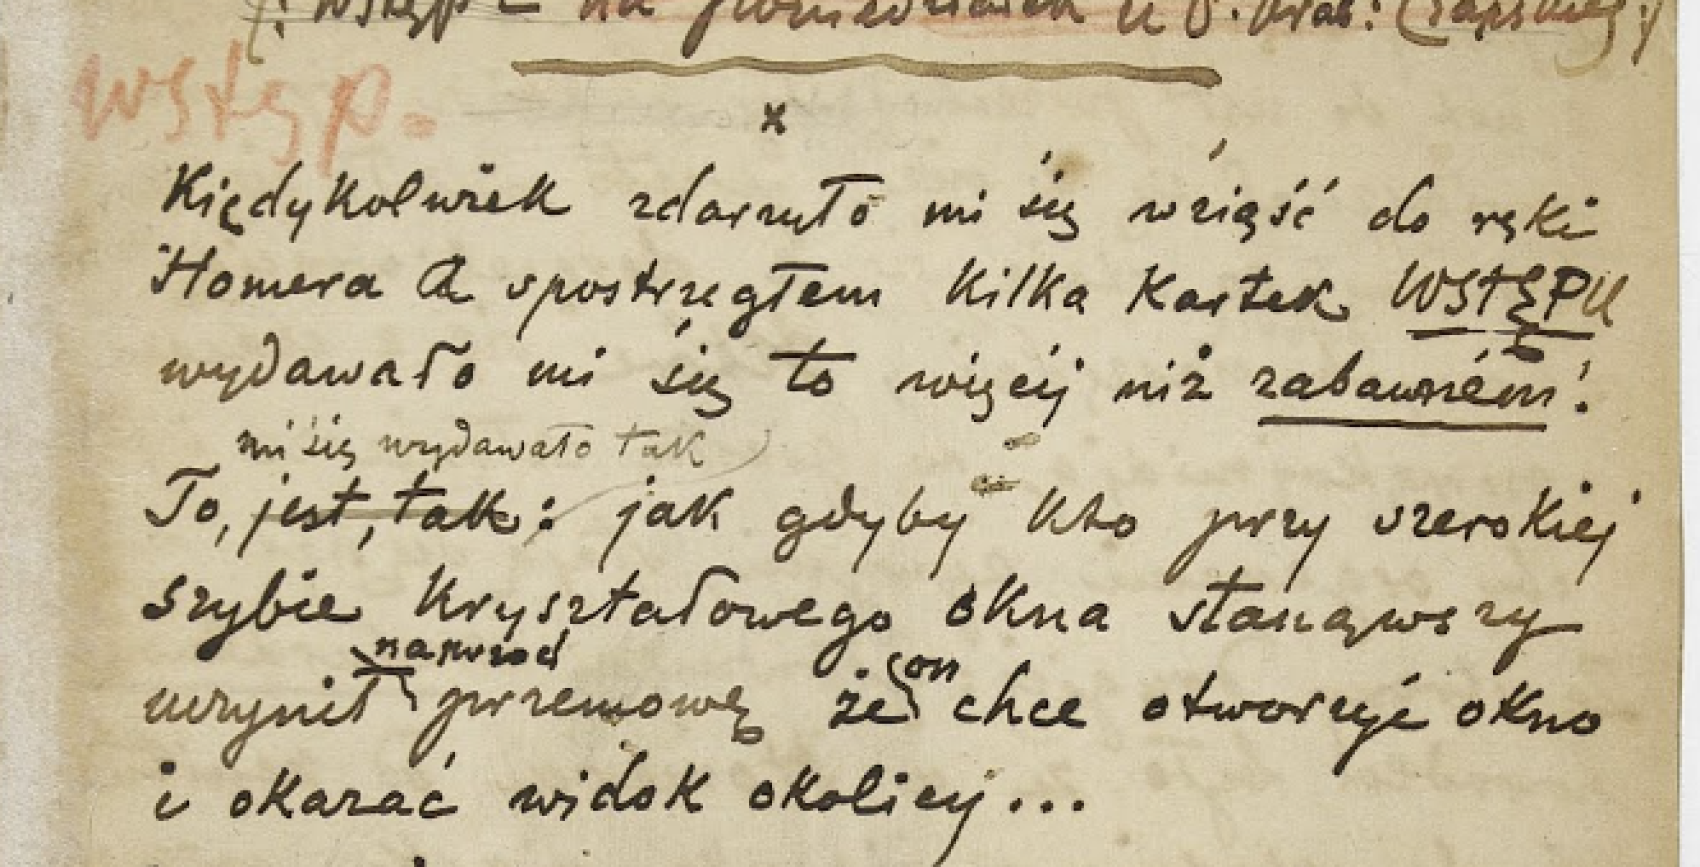 (: Wstęp – na poniedziałek u P. Hrab: Czapskiej :)
Wstęp.
x
Kiędykolwiek zdarzyło mi się wziąść do ręki
Homera a spostrzegłem kilka kartek WSTĘPU
wydawało mi się to więcej niż zabawném!
mi się wydawało tak
To, jest, tak: jak gdyby kto przy szerokiej
szybie kryształowego okna stanąwszy
naprzód
uczynił przemowę że on chce otworzyć okno
i okazać widok okolicy...